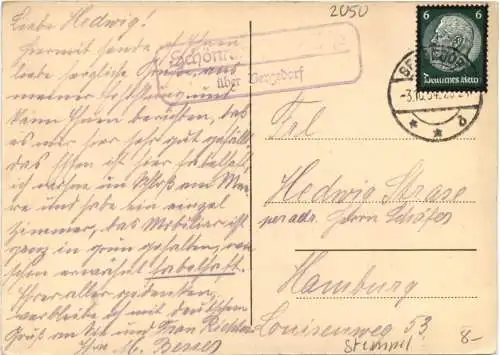 2050
Liebe Hedwig!
Hiermit sende ich Ihnen
liebe herzliche Grüße aus
meiner
kann Ihnen berichten, das
es mir hier sehr gut gefällt
das ist hier fabelhaft
ich wohne im Schloß am
und habe ein einzel
Zimmer, das Mobiliar ist
ganz in grün gehalten, wie
schon erwähnt fabelhaft.
Ihrer aller gedenken,
verbleibe ich mit deutschem
Gruß an Sie und Frau
Ihre M. Besser
Schönn
über Bergedorf
6 6
Deutsches Reich
Frl.
Hedwig Strase
per adr. Herrn Schäfer
Hamburg
Louisenweg 53.
Stempel
8-